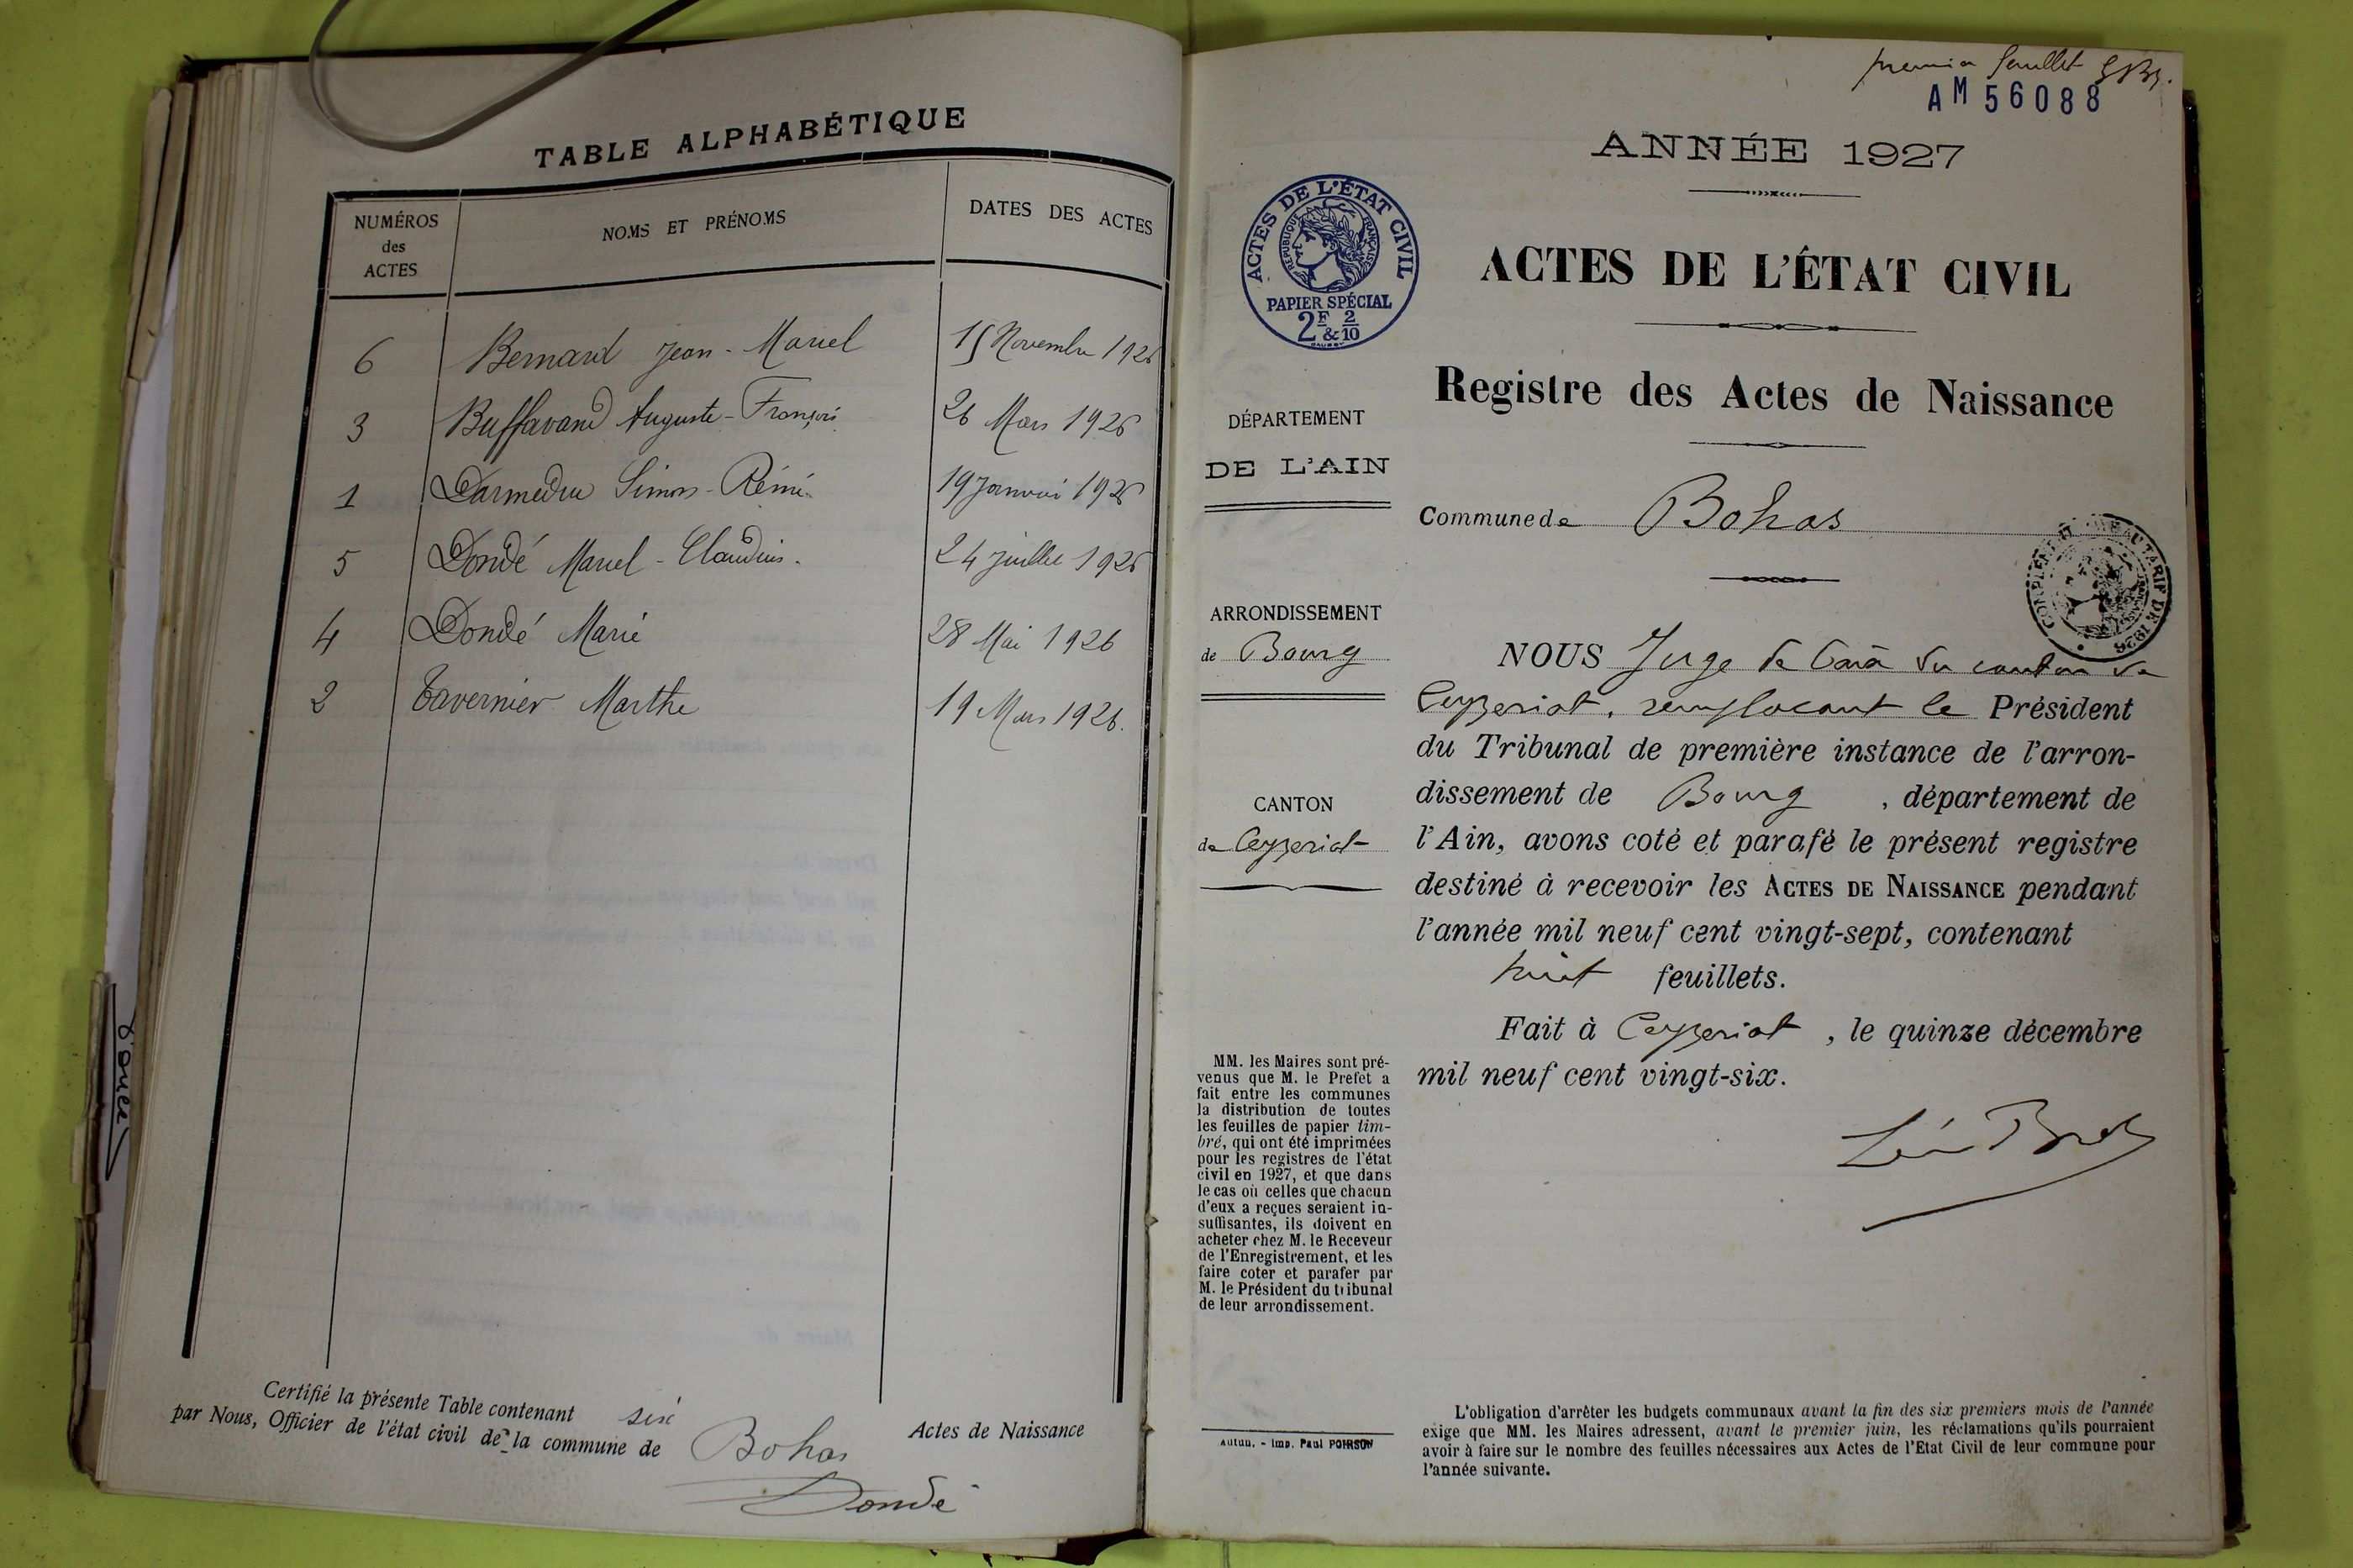 TABLE ALPHABÉTIQUE
NUMÉROS des ACTES
NOMS ET PRÉNOMS
DATES DES ACTES
6 Bernard Jean-Marcel 15 Novembre 1926
3 Buffavand Auguste-François 26 Mars 1926
1 Darmedru Simon-Rémi 19 Janvier 1926
5 Dondé Marcel-Claudius. 24 juillet 1926
4 Dondé Marie 28 Mai 1926
2 Tavernier Marthe 19 Mars 1926.
Certifié la présente Table contenant six Actes de Naissance
par Nous, Officier de l'état civil de la commune de Bohas
Dondé
premier feuillet
AM 56088
ANNÉE 1927
ACTES DE L'ÉTAT CIVIL
RÉPUBLIQUE FRANÇAISE
PAPIER SPÉCIAL
2F & 2/10
ACTES DE L'ÉTAT CIVIL
Registre des Actes de Naissance
DÉPARTEMENT
DE L'AIN
Commune de Bohas
TARIF DE 1926
ARRONDISSEMENT
de Bourg
CANTON
de Ceyzeriat
NOUS Juge de Paix du canton de
Ceyzeriat, remplaçant le Président
du Tribunal de première instance de l'arron-
dissement de Bourg, département de
l'Ain, avons coté et parafé le présent registre
destiné à recevoir les ACTES DE NAISSANCE pendant
l'année mil neuf cent vingt-sept, contenant
huit feuillets.
Fait à Ceyzeriat, le quinze décembre
mil neuf cent vingt-six.
MM. les Maires sont pré-
venus que M. le Prefet a
fait entre les communes
la distribution de toutes
les feuilles de papier tim-
bré, qui ont été imprimées
pour les registres de l'état
civil en 1927, et que dans
le cas où celles que chacun
d'eux a reçues seraient in-
suffisantes, ils doivent en
acheter chez M. le Receveur
de l'Enregistrement, et les
faire coter et parafer par
M. le Président du tribunal
de leur arrondissement.
Autun. - Imp. Paul POIRSON
L'obligation d'arrêter les budgets communaux avant la fin des six premiers mois de l'année
exige que MM. les Maires adressent, avant le premier juin, les réclamations qu'ils pourraient
avoir à faire sur le nombre des feuilles nécessaires aux Actes de l'Etat Civil de leur commune pour
l'année suivante.